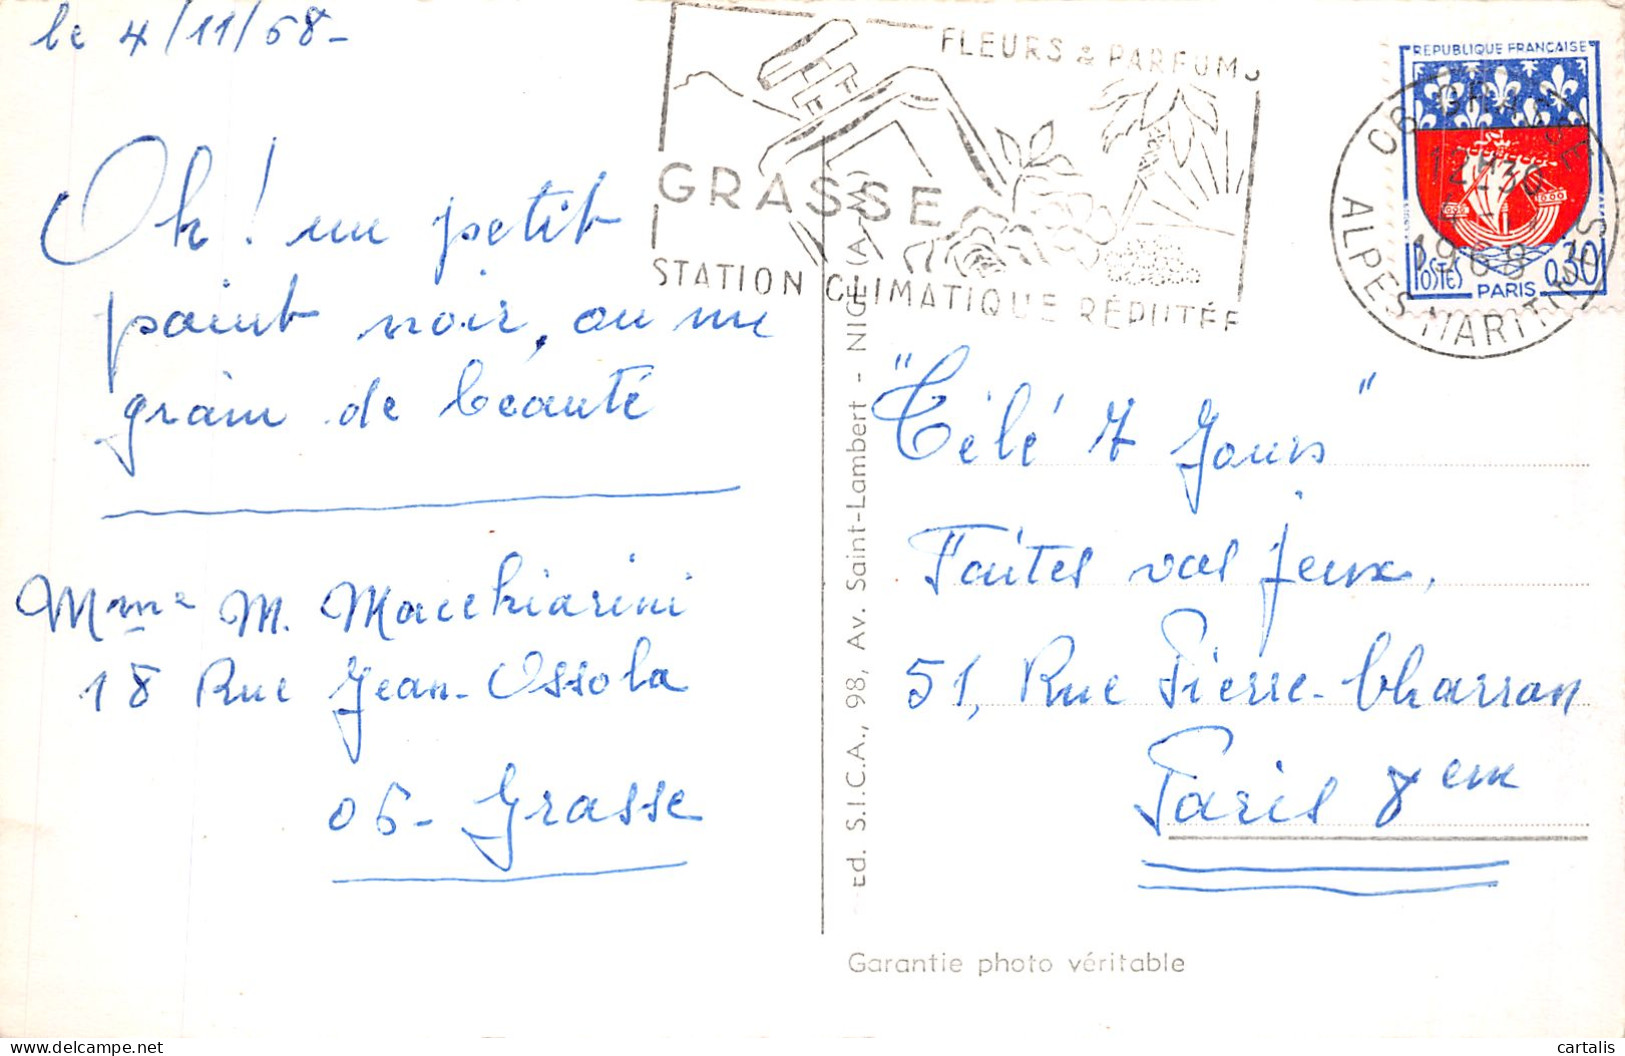 le 4/11/68-
Oh! un petit
point noir, ou un
grain de beauté
Mme M. Macchiarini
18 Rue Jean-Ossola
06- Grasse
FLEURS & PARFUMS
GRASSE
STATION CLIMATIQUE RÉPUTÉE
06 GRASSE
12H30
4-11
1968
ALPES-MARITIMES
REPUBLIQUE FRANÇAISE
POSTES 0,30
PARIS
Ed. S.I.C.A., 98, Av. Saint-Lambert - NICE (A.-M.)
"Télé 7 Jours"
Faites vos jeux,
51, Rue Pierre-Charran
Paris 8em
Garantie photo véritable
cartalis